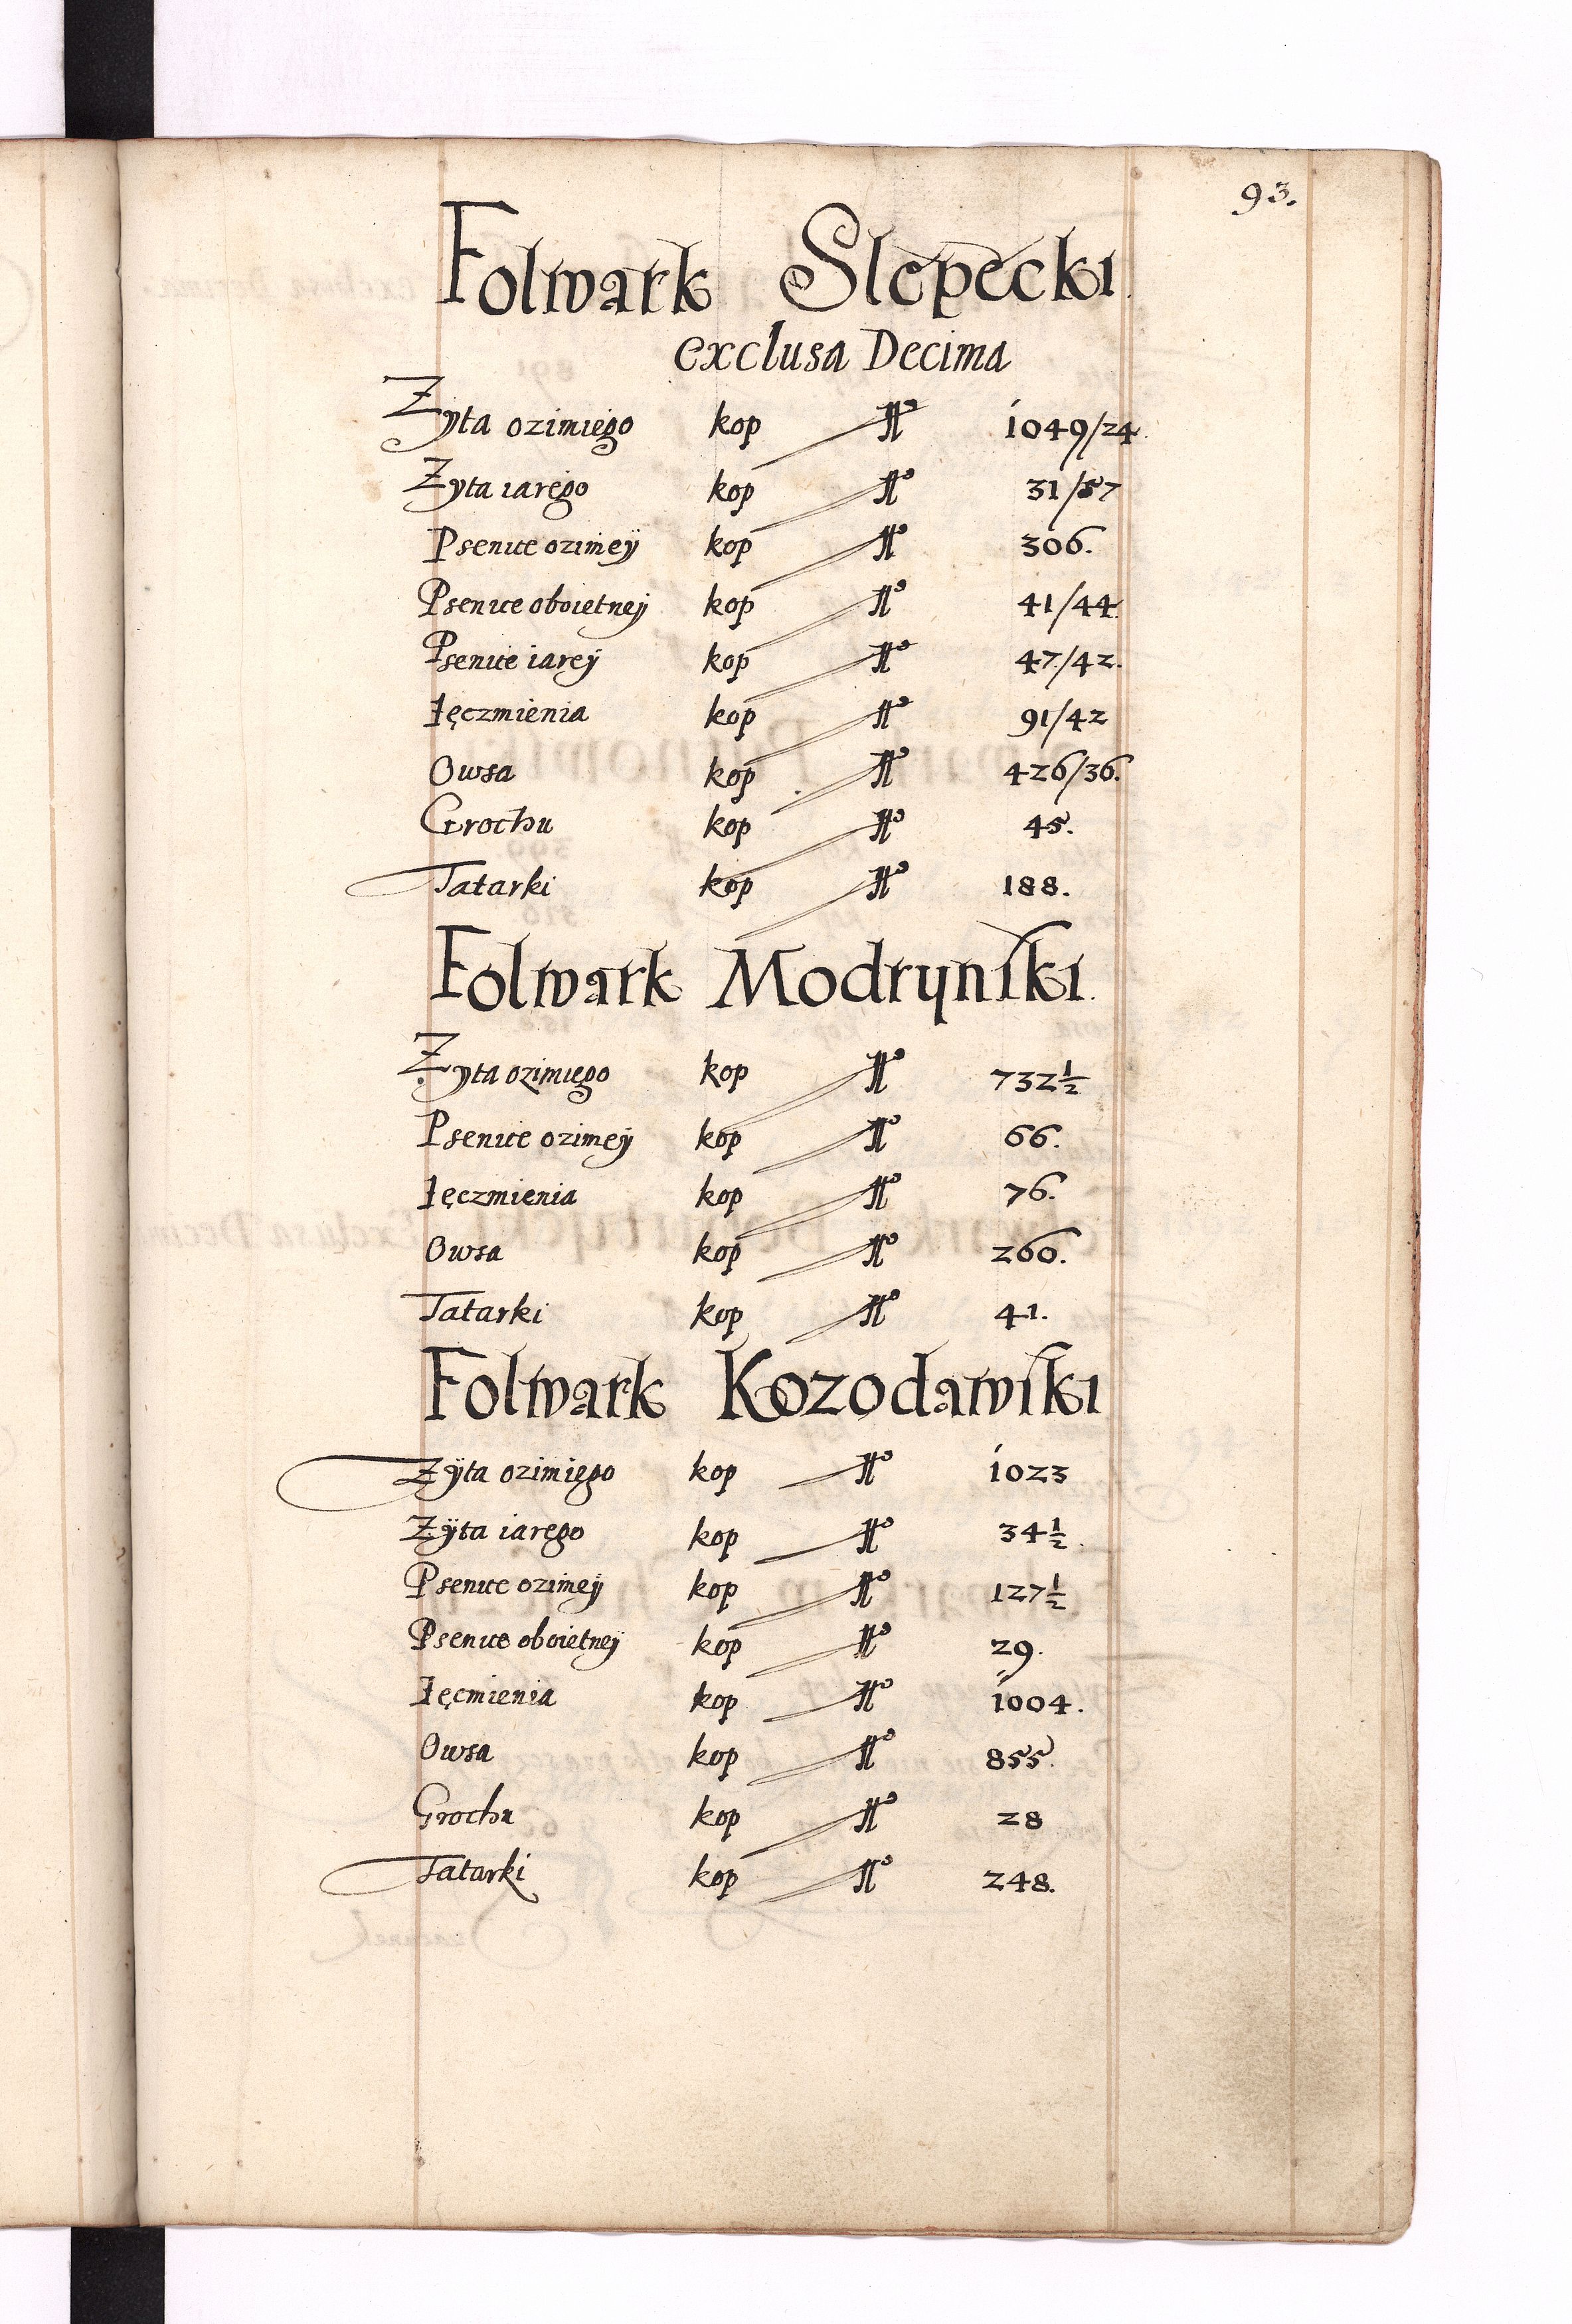 93.
Folwark Slepecki
exclusa Decima
Zyta ozimiego kop No 1049/24
Zyta iarego kop No 31/57
Psenice ozimeÿ kop No 306.
Psenice oboietneÿ kop No 41/44
Psenice iareÿ kop No 47/42.
Ięczmienia kop No 91/42
Owsa kop No 426/36.
Grochu kop No 45.
Tatarki kop No 188.
Folwark Modrynſki.
Zyta ozimiego kop No 732½
Psenice ozimeÿ kop No 66.
Ięczmienia kop No 76.
Owsa kop No 260.
Tatarki kop No 41.
Folwark Kozodawſki
Zÿta ozimiego kop No 1023
Zÿta iarego kop No 34½.
Psenice ozimeÿ kop No 127½
Psenice oboietneÿ kop No 29.
Ięcmienia kop No 1004.
Owsa kop No 855.
Grochu kop No 28
Tatarki kop No 248.